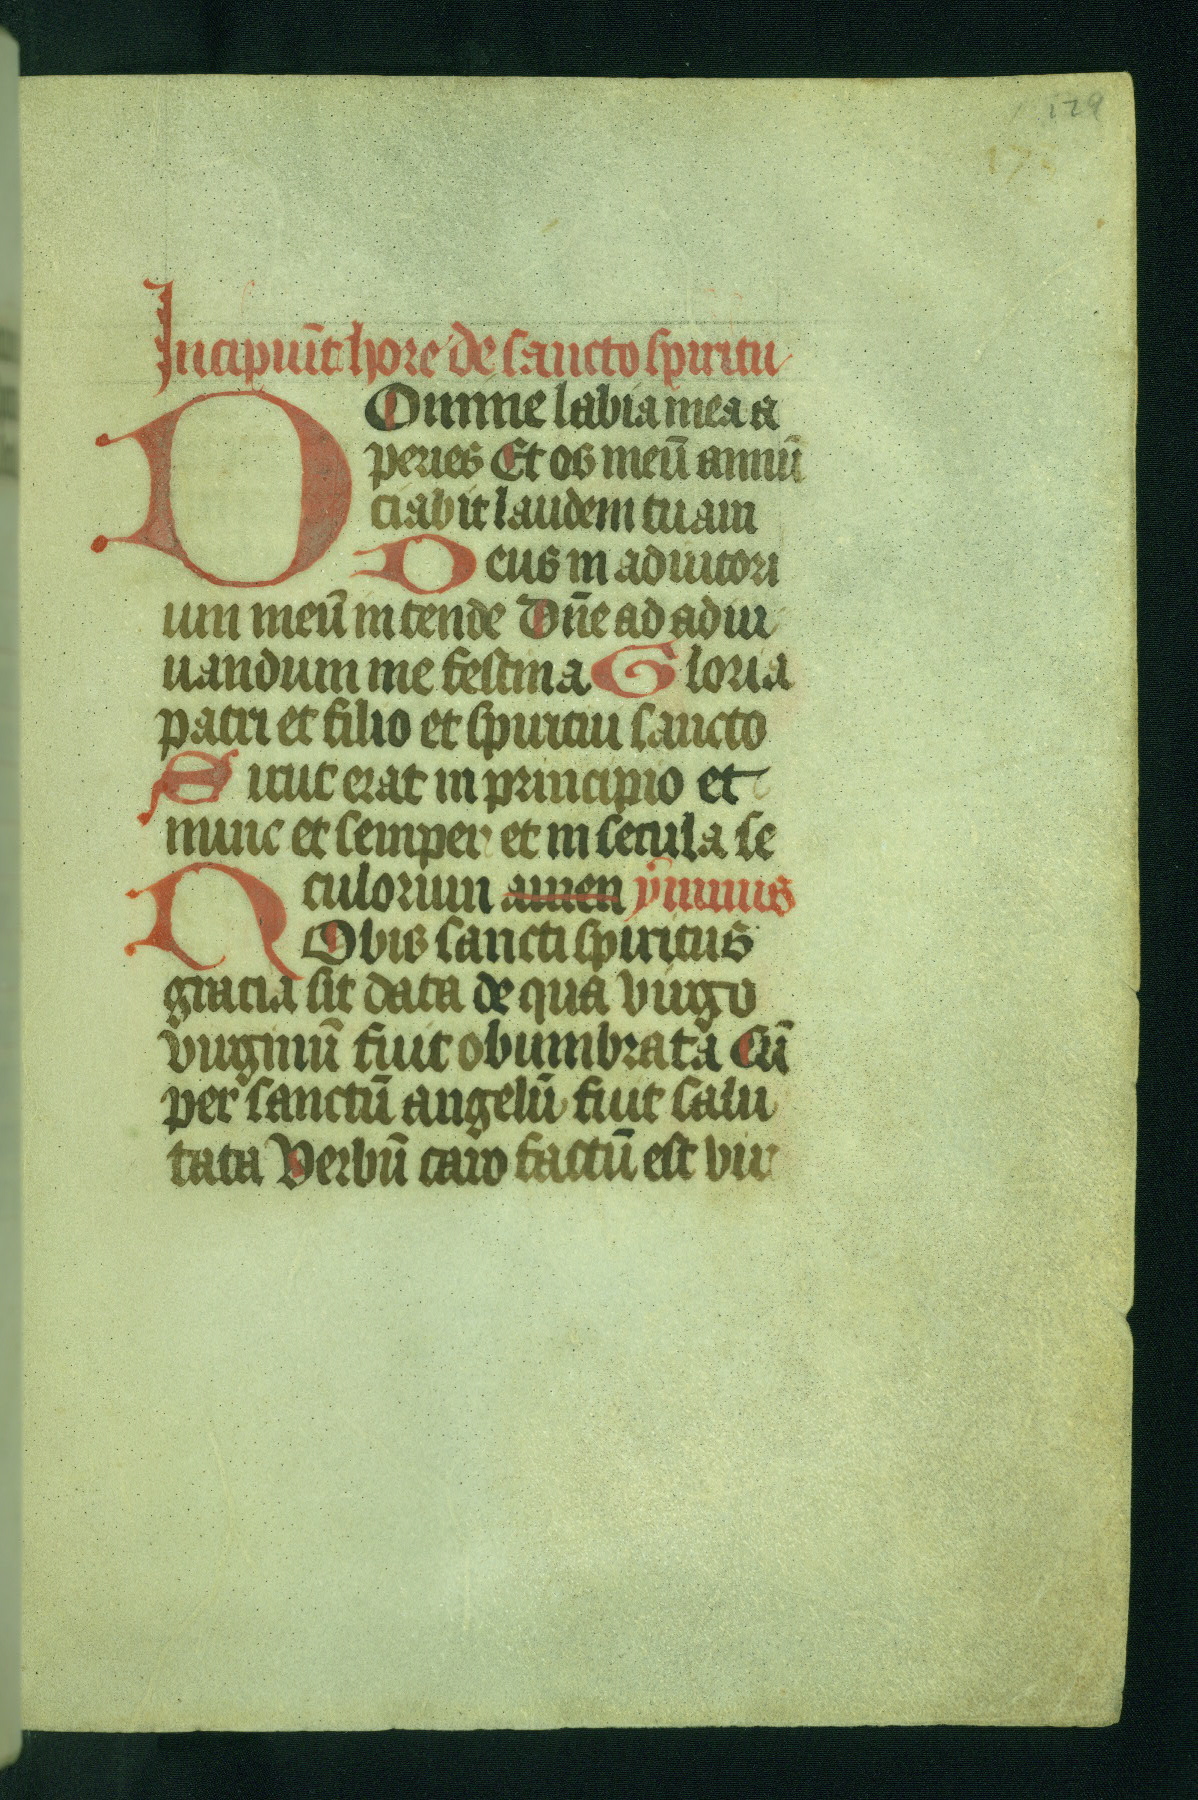 129
17
Incipiūt hore de sancto spiritu
DOmine labia mea a
peries Et os meū annū
ciabit laudem tuam
Deus in adiutori
um meū intende Dn̄e ad adiu
uandum me festina Gloria
patri et filio et spiritui sancto
Sicut erat in principio et
nunc et semper et in secula se
culorum amen ymnus
NObis sancti spiritus
gracia sit data de qua virgo
virginū fuit obumbrata Cū
per sanctū angelū fuit salu
tata Verbū caro factū est vir